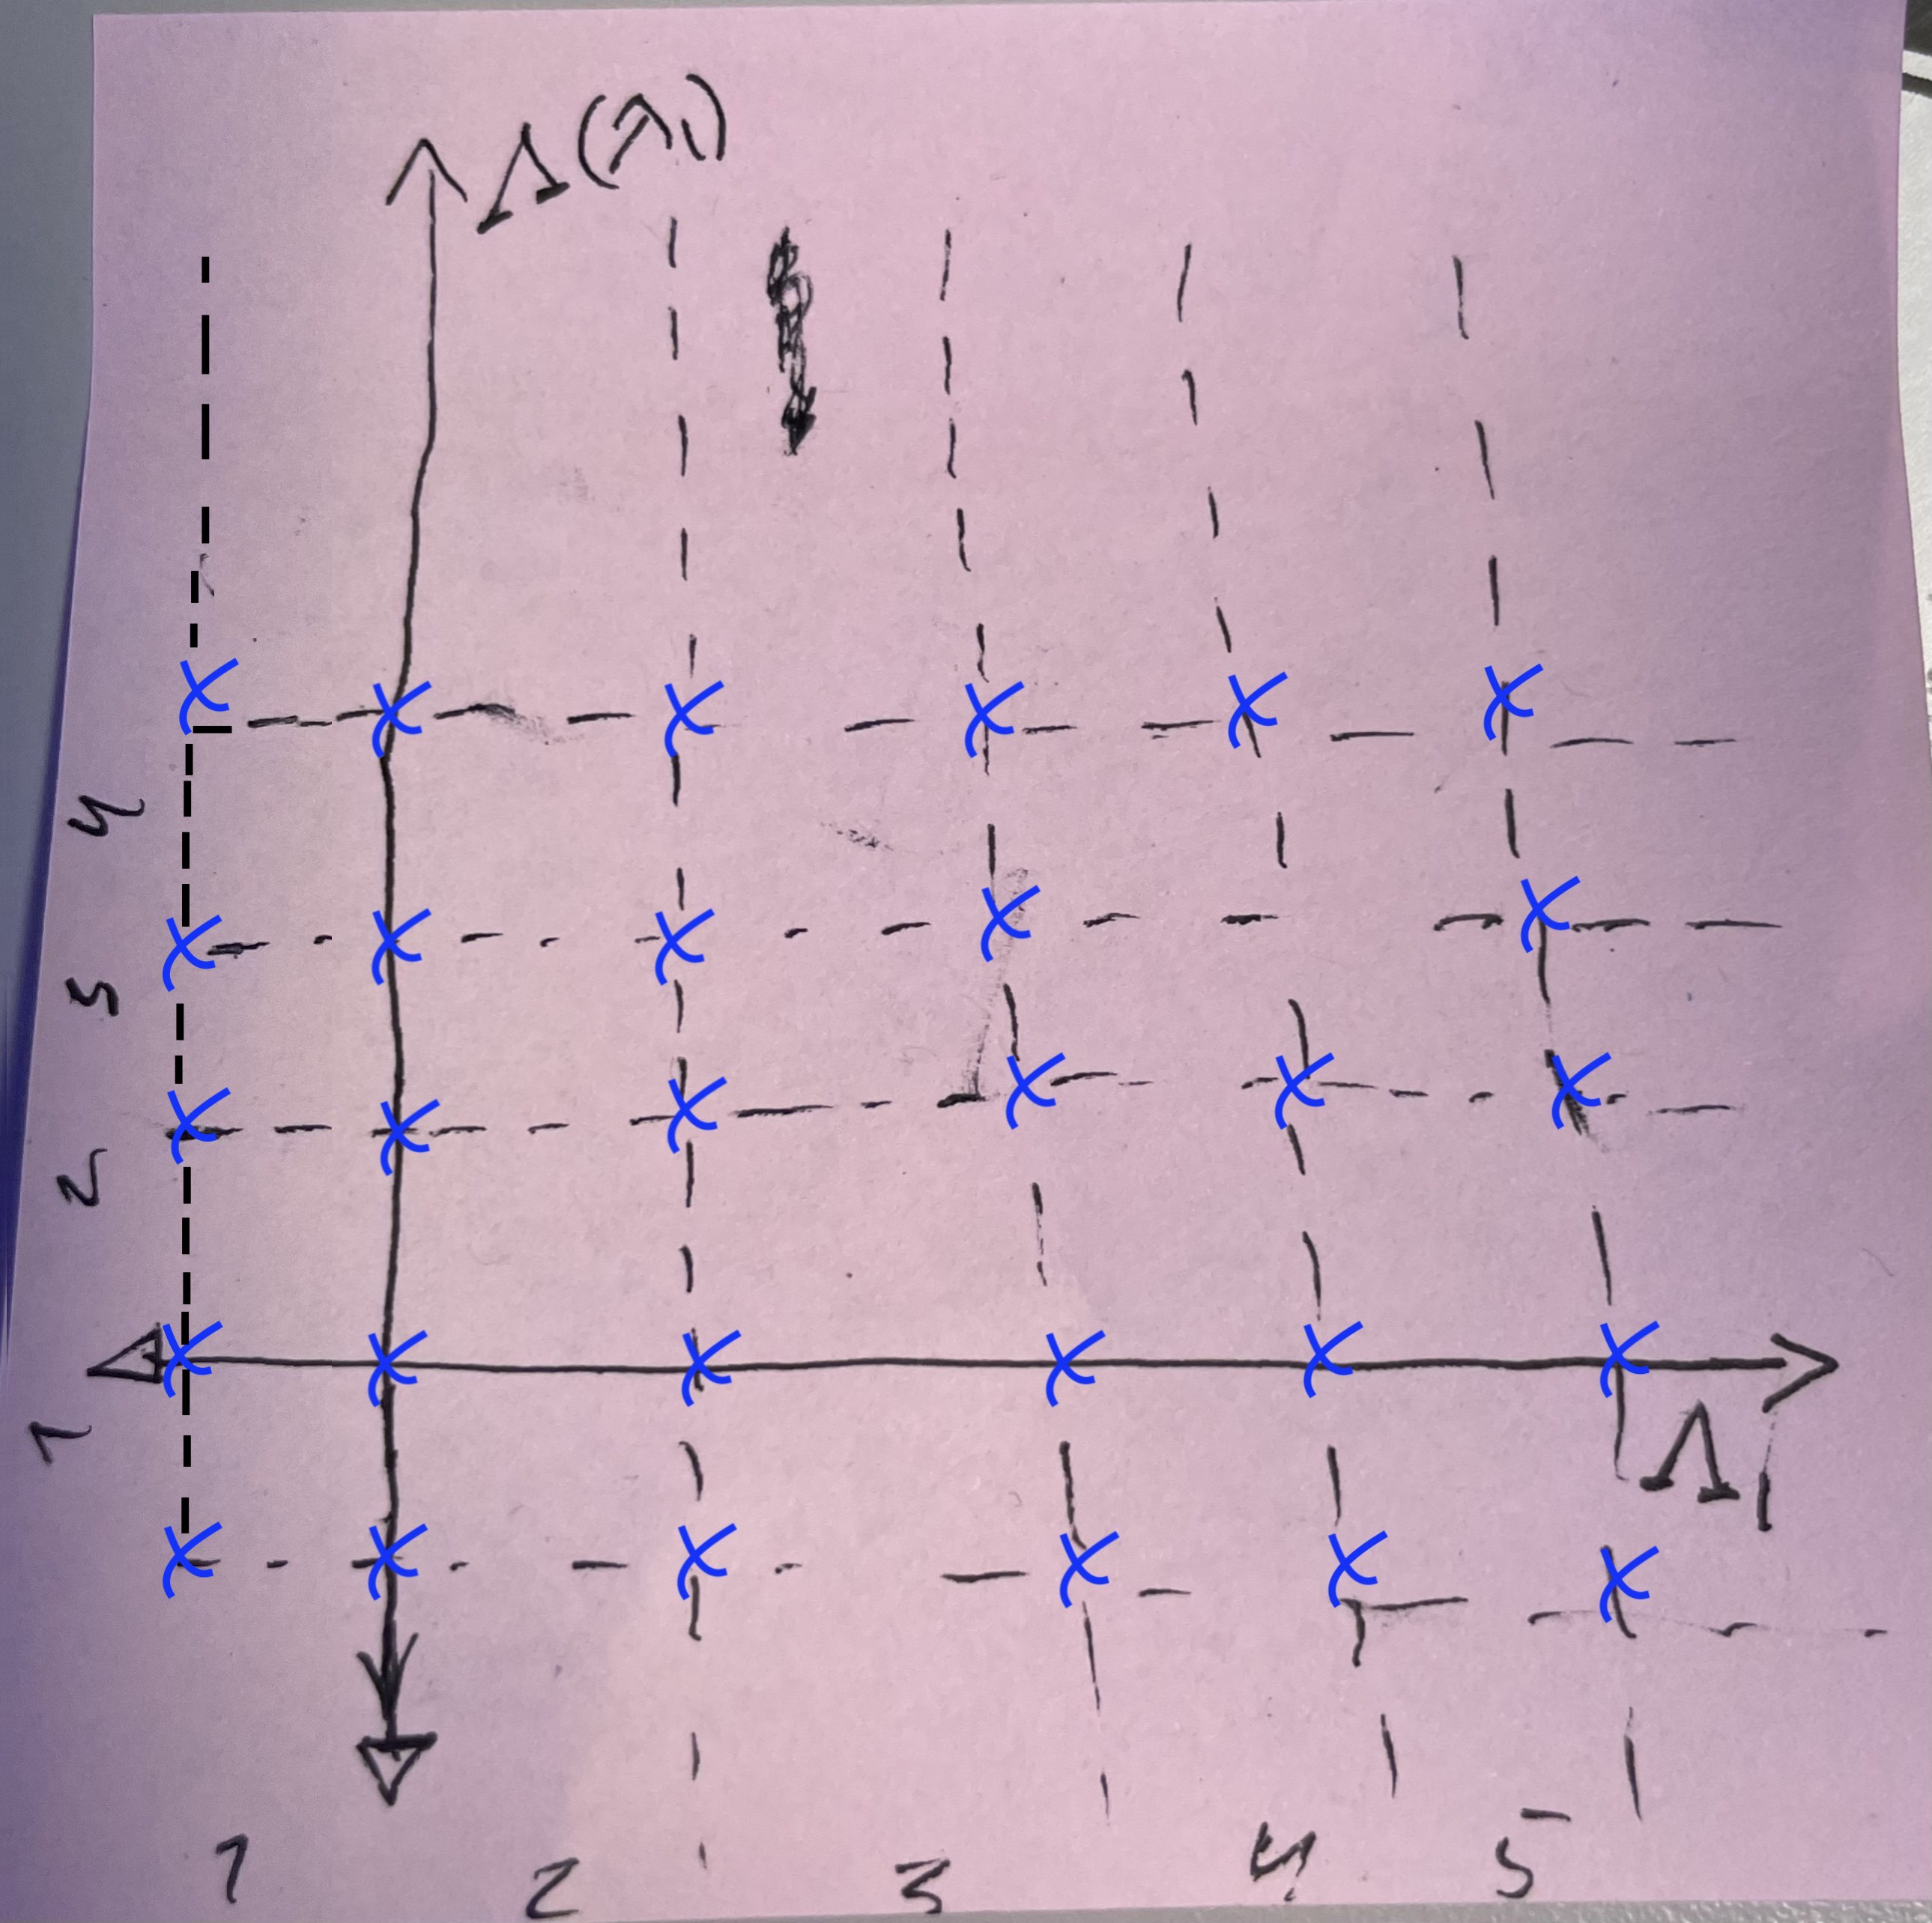 Λ(λ₁)
4
3
2
1
Λ₁
1 2 3 4 5